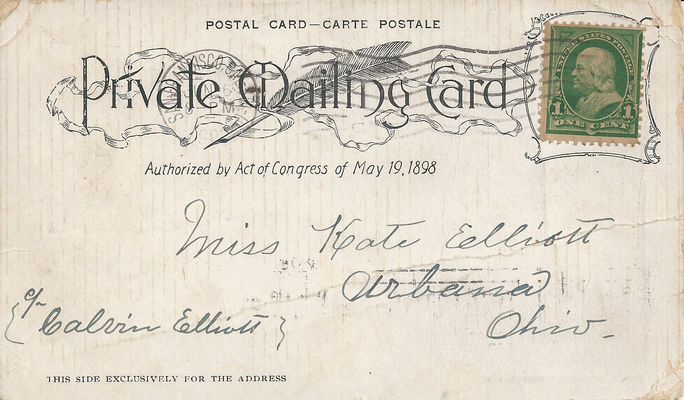 POSTAL CARD—CARTE POSTALE
Private Mailing Card
Authorized by Act of Congress of May 19, 1898
UNITED STATES POSTAGE
1 1
ONE CENT
Miss Kate Elliott
Urbana
Ohio-
{ c/o Calvin Elliott }
THIS SIDE EXCLUSIVELY FOR THE ADDRESS